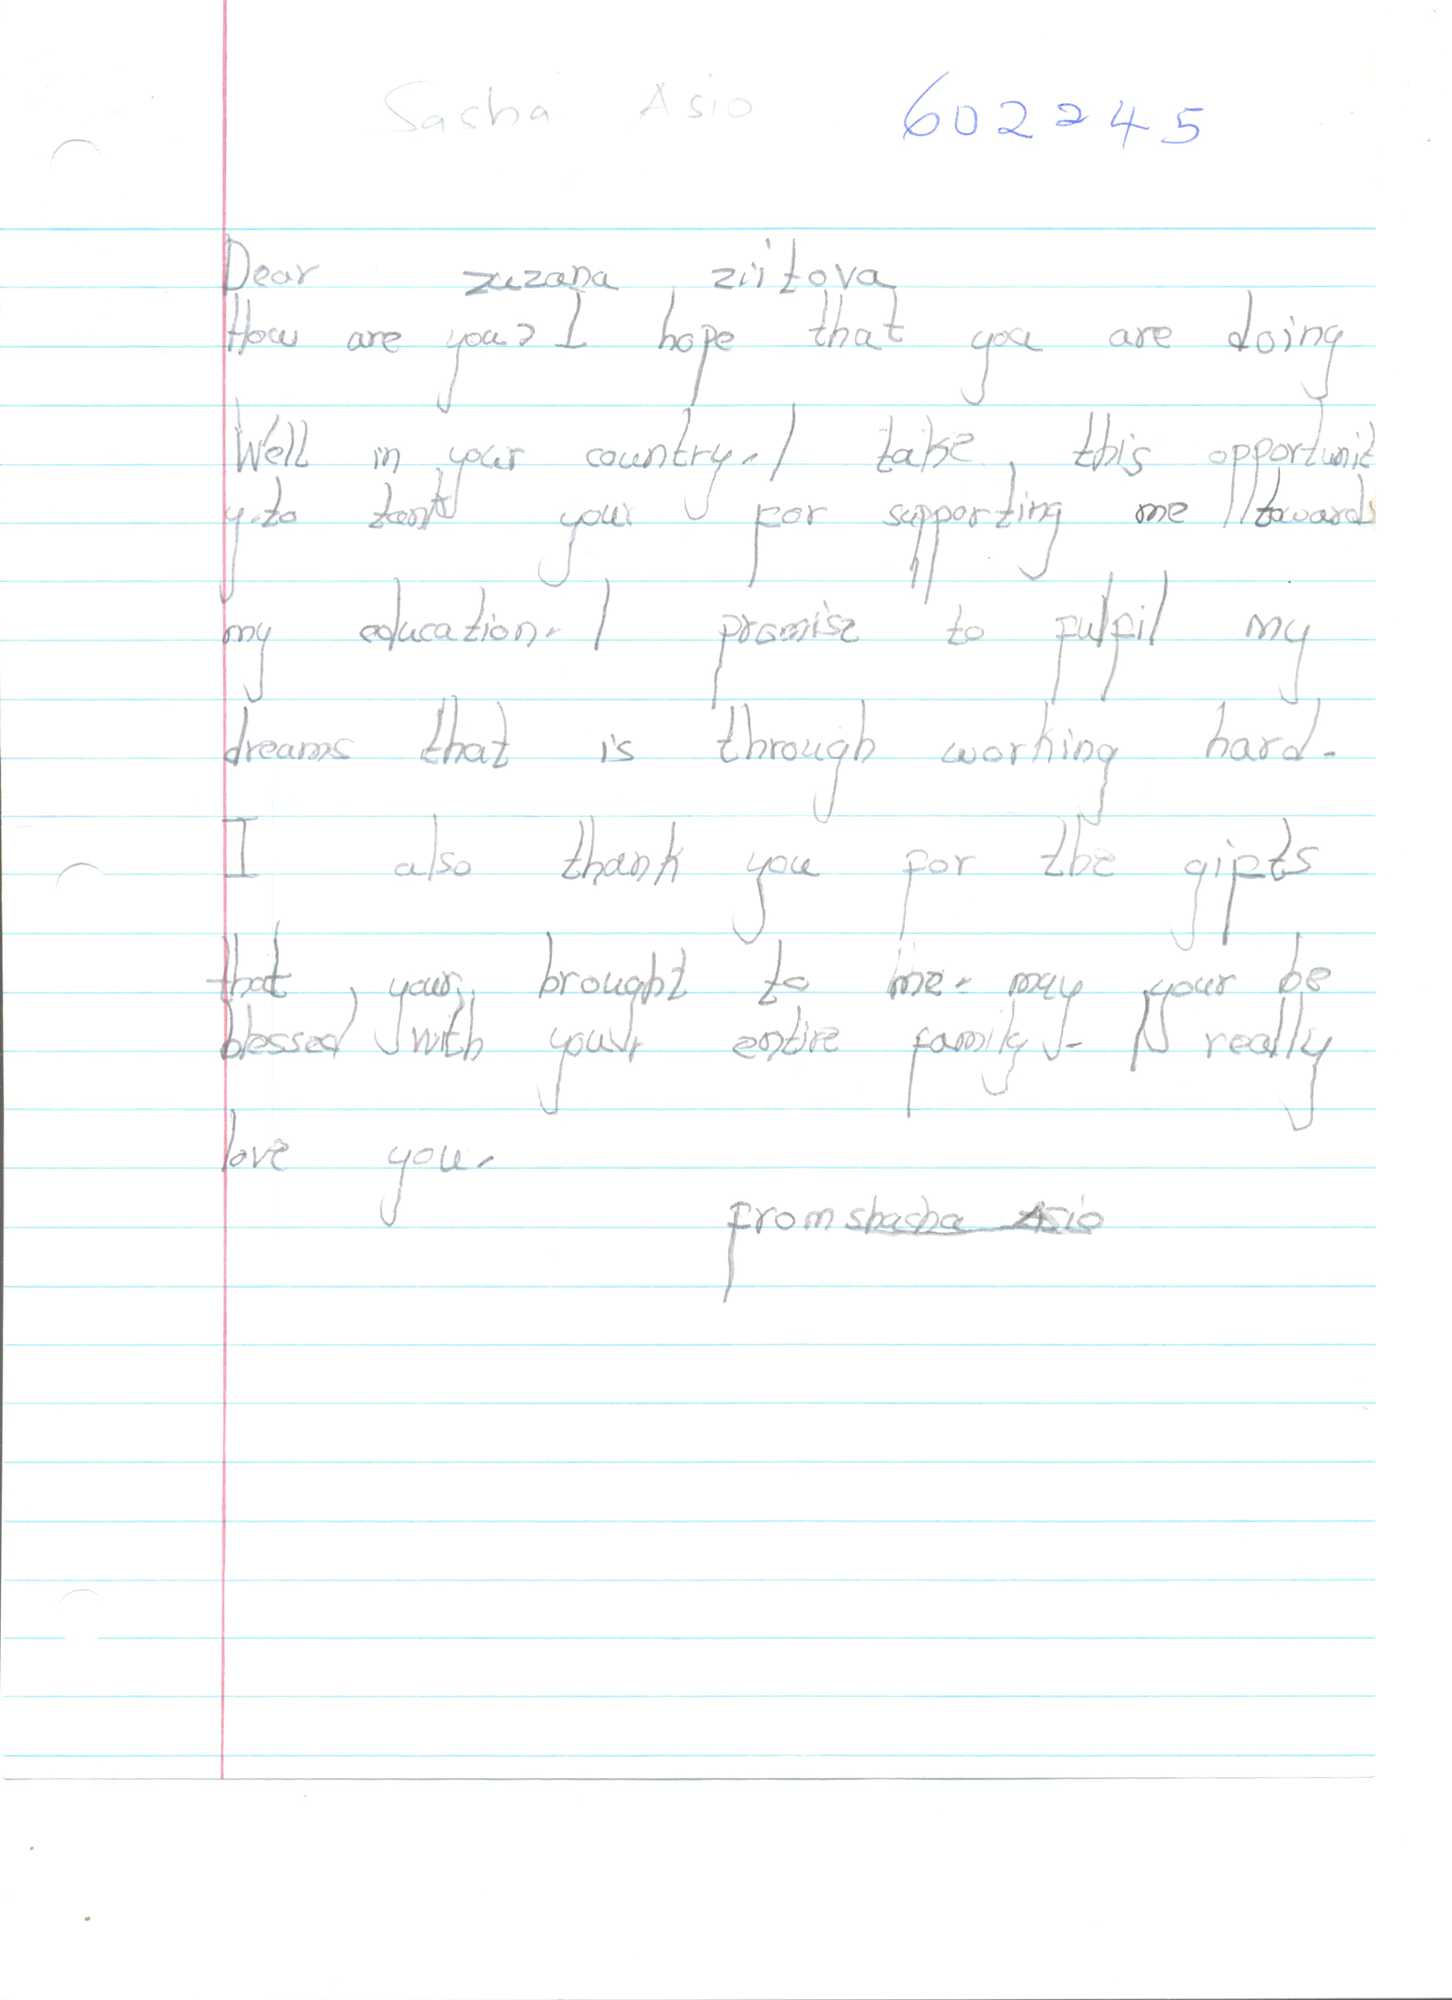 Sasha Asio 602245
Dear zuzana ziitova
How are you? I hope that you are doing
Well in your country. I take this opportunit
y.to tank your for supporting me towards
my education. I promise to fulfil my
dreams that is through working hard.
I also thank you for the gifts
that your brought to me. may your be
blessed with your entire family. I really
love you.
from shasha Asio